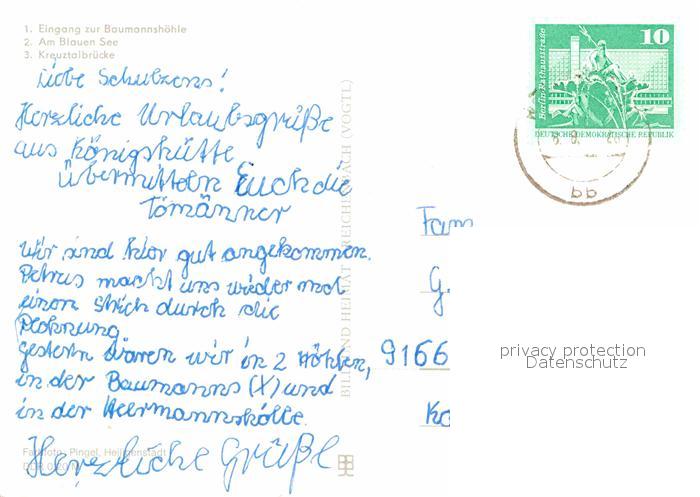 1. Eingang zur Baumannshöhle
2. Am Blauen See
3. Kreuztalbrücke
Liebe Schulzens!
Herzliche Urlaubsgrüße
aus Königshütte
übermitteln Euch die
Tomänner
Wir sind hier gut angekommen.
Petrus macht uns wieder mal
einen Strich durch die
Rechnung.
Gestern waren wir in 2 Höhlen,
in der Baumanns (X) und
in der Heermannshölle.
Herzliche Grüße
Farbfoto: Pingel, Heiligenstadt
DDR 0,20 M
BILD UND HEIMAT REICHENBACH (VOGTL)
Fam
G.
9166
Ko
Berlin-Rathausstraße
10
DEUTSCHE DEMOKRATISCHE REPUBLIK
bb
privacy protection
Datenschutz